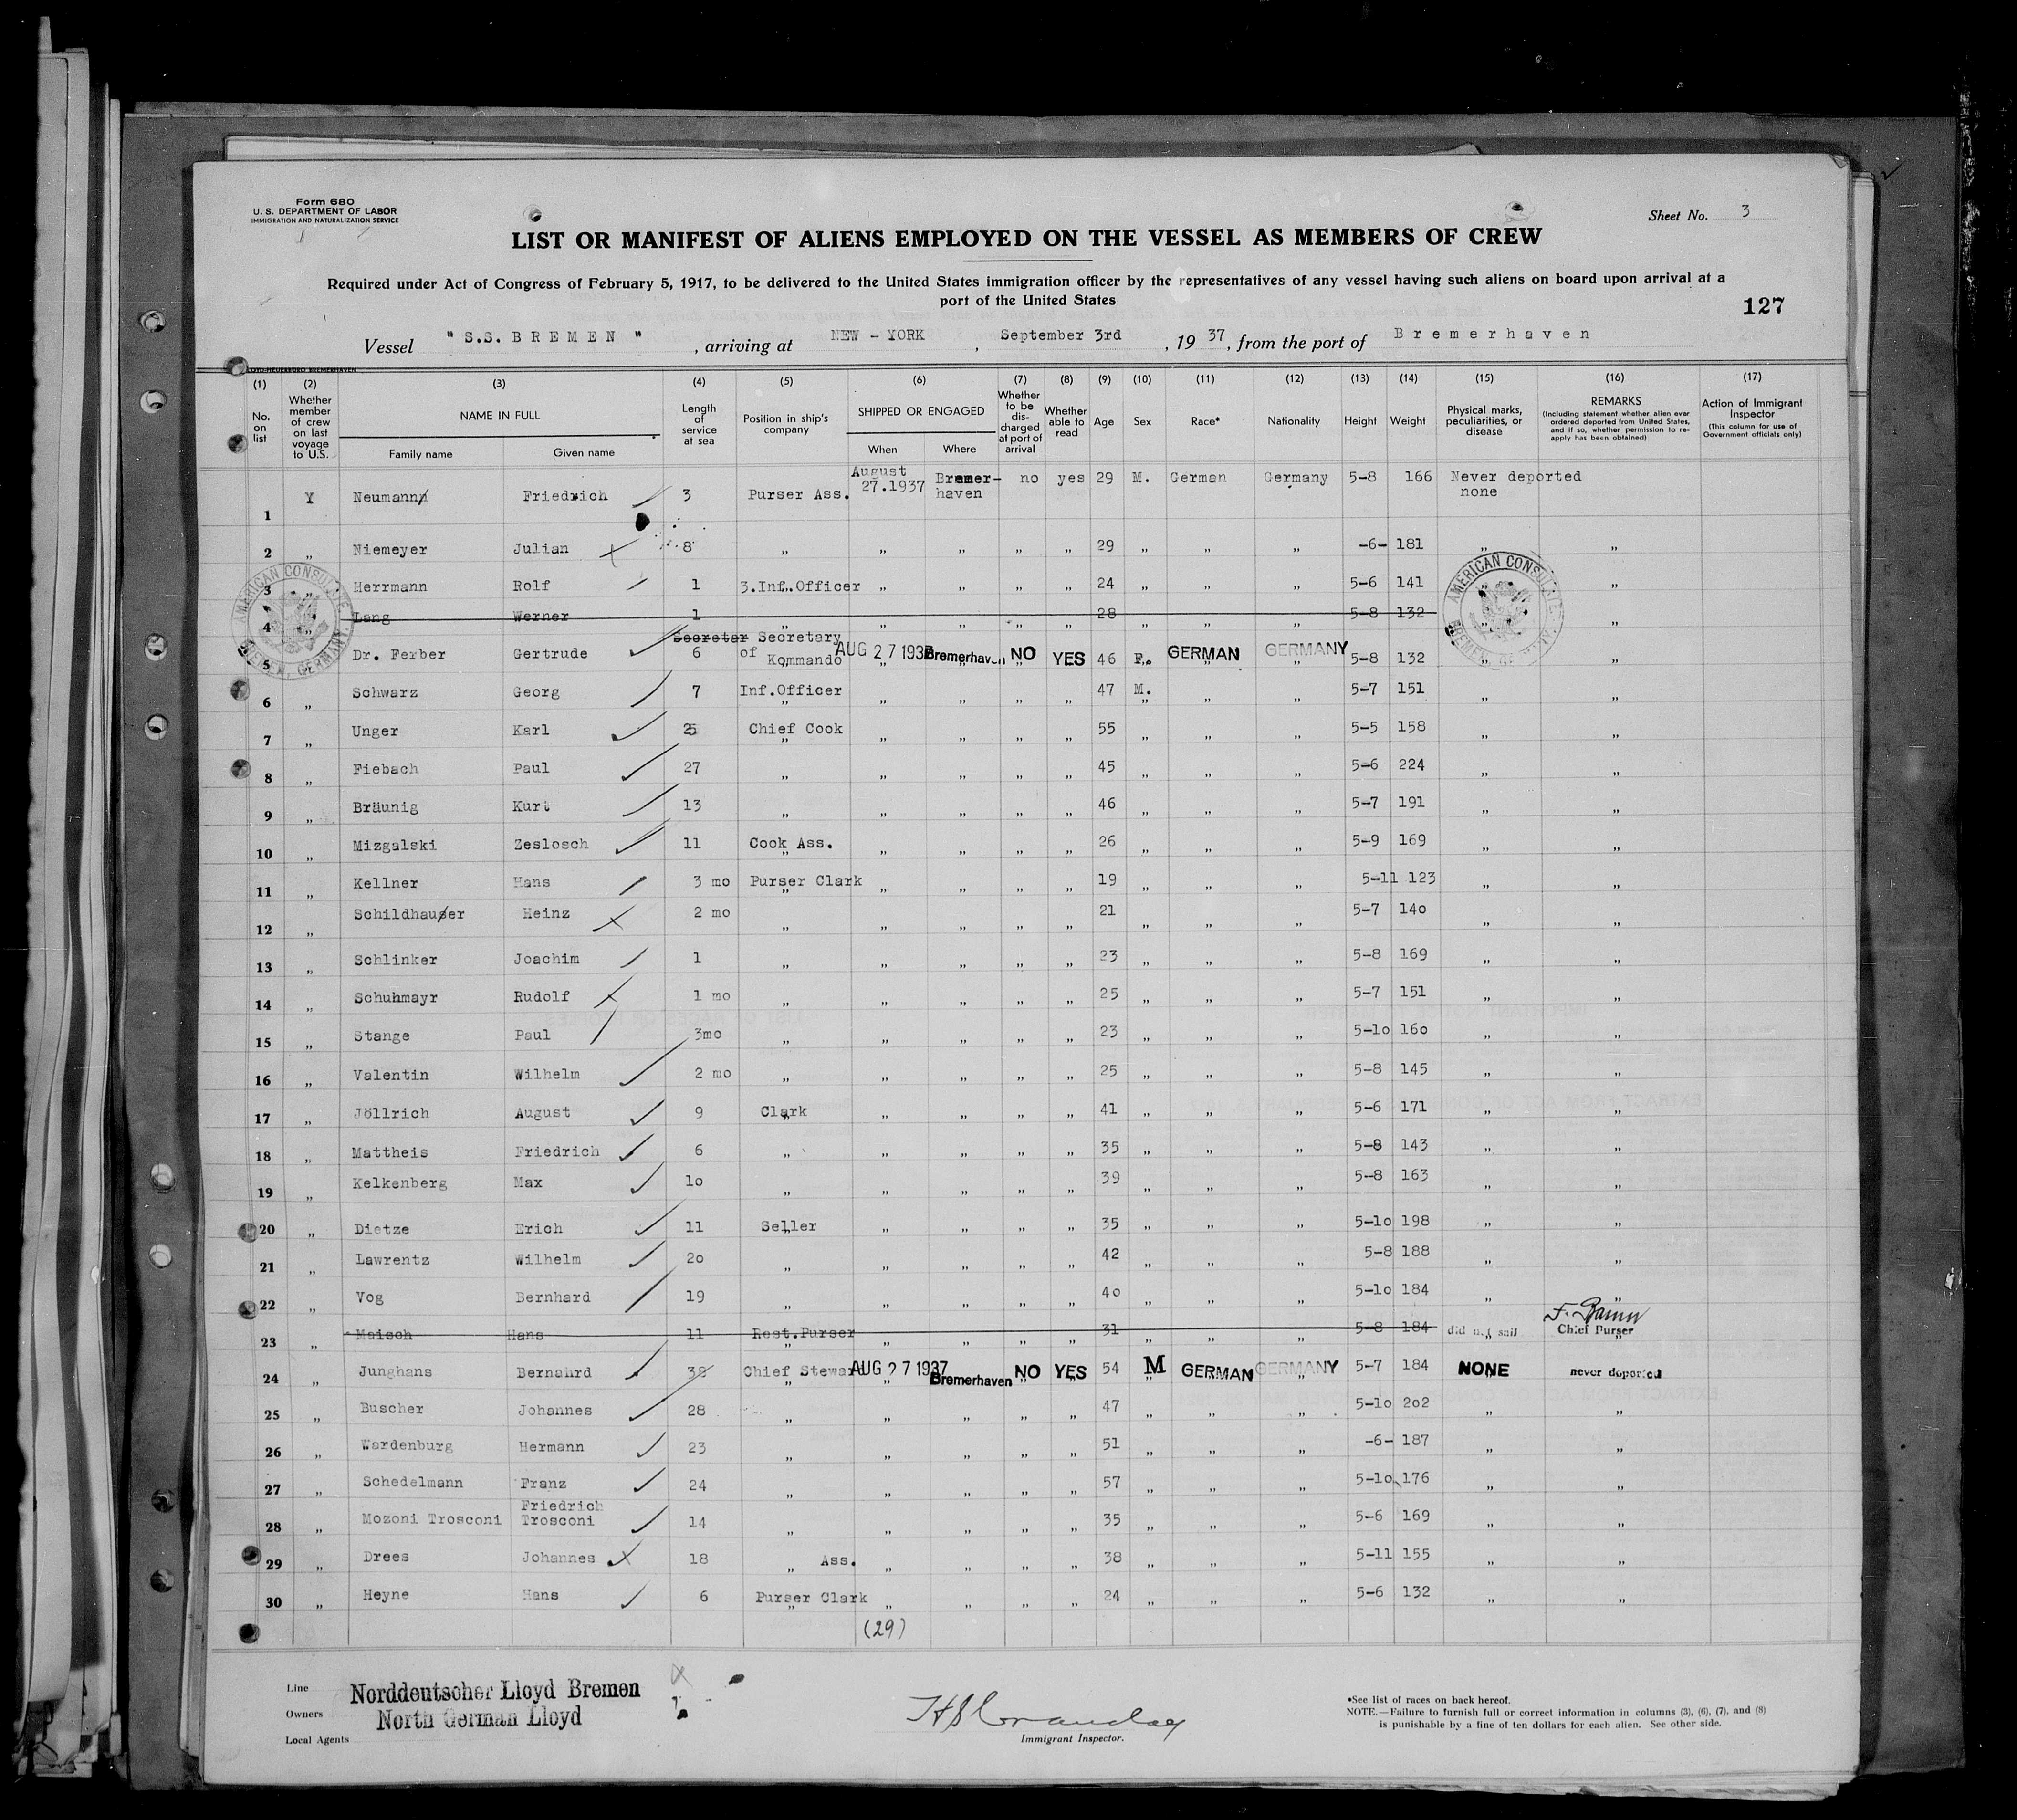 Form 680
U. S. DEPARTMENT OF LABOR
IMMIGRATION AND NATURALIZATION SERVICE
Sheet No. 3
LIST OR MANIFEST OF ALIENS EMPLOYED ON THE VESSEL AS MEMBERS OF CREW
Required under Act of Congress of February 5, 1917, to be delivered to the United States immigration officer by the representatives of any vessel having such aliens on board upon arrival at a
port of the United States
127
Vessel " S.S. B R E M E N " , arriving at NEW - YORK , September 3rd , 19 37, from the port of B r e m e r h a v e n
(1) (2) (3) (4) (5) (6) (7) (8) (9) (10) (11) (12) (13) (14) (15) (16) (17)
No. on list Whether member of crew on last voyage to U.S. NAME IN FULL Length of service at sea Position in ship's company SHIPPED OR ENGAGED Whether to be discharged at port of arrival Whether able to read Age Sex Race* Nationality Height Weight Physical marks, peculiarities, or disease REMARKS (Including statement whether alien ever ordered deported from United States, and if so, whether permission to reapply has been obtained) Action of Immigrant Inspector (This column for use of Government officials only)
Family name Given name When Where
1 Y Neumann Friedrich 3 Purser Ass. August 27.1937 Bremer-haven no yes 29 M. German Germany 5-8 166 Never deported none
2 „ Niemeyer Julian 8 „ „ „ „ „ 29 „ „ „ -6- 181 „ „
3 „ Herrmann Rolf 1 3.Inf.Officer „ „ „ „ 24 „ „ „ 5-6 141 „ „
4 „ Lang Werner 1 „ „ „ „ „ 28 „ „ „ 5-8 132 „ „
5 „ Dr. Ferber Gertrude 6 Secretar Secretary of Kommando AUG 27 1937 Bremerhaven NO YES 46 F. GERMAN GERMANY 5-8 132 „ „
6 „ Schwarz Georg 7 Inf.Officer „ „ „ „ 47 M. „ „ 5-7 151 „ „
7 „ Unger Karl 25 Chief Cook „ „ „ „ 55 „ „ „ 5-5 158 „ „
8 „ Fiebach Paul 27 „ „ „ „ „ 45 „ „ „ 5-6 224 „ „
9 „ Bräunig Kurt 13 „ „ „ „ „ 46 „ „ „ 5-7 191 „ „
10 „ Mizgalski Zeslosch 11 Cook Ass. „ „ „ „ 26 „ „ „ 5-9 169 „ „
11 „ Kellner Hans 3 mo Purser Clark „ „ „ „ 19 „ „ „ 5-11 123 „ „
12 „ Schildhauser Heinz 2 mo „ „ „ „ „ 21 „ „ „ 5-7 140 „ „
13 „ Schlinker Joachim 1 „ „ „ „ „ 23 „ „ „ 5-8 169 „ „
14 „ Schuhmayr Rudolf 1 mo „ „ „ „ „ 25 „ „ „ 5-7 151 „ „
15 „ Stange Paul 3mo „ „ „ „ „ 23 „ „ „ 5-10 160 „ „
16 „ Valentin Wilhelm 2 mo „ „ „ „ „ 25 „ „ „ 5-8 145 „ „
17 „ Jöllrich August 9 Clark „ „ „ „ 41 „ „ „ 5-6 171 „ „
18 „ Mattheis Friedrich 6 „ „ „ „ „ 35 „ „ „ 5-8 143 „ „
19 „ Kelkenberg Max 10 „ „ „ „ „ 39 „ „ „ 5-8 163 „ „
20 „ Dietze Erich 11 Seller „ „ „ „ 35 „ „ „ 5-10 198 „ „
21 „ Lawrentz Wilhelm 20 „ „ „ „ „ 42 „ „ „ 5-8 188 „ „
22 „ Vog Bernhard 19 „ „ „ „ „ 40 „ „ „ 5-10 184 „ „
23 „ Maisch Hans 11 Rest.Purser „ „ „ „ 31 „ „ „ 5-8 184 did not sail Chief Purser
24 „ Junghans Bernahrd 38 Chief Steward AUG 27 1937 Bremerhaven NO YES 54 M GERMAN GERMANY 5-7 184 NONE never deported
25 „ Buscher Johannes 28 „ „ „ „ „ 47 „ „ „ 5-10 202 „ „
26 „ Wardenburg Hermann 23 „ „ „ „ „ 51 „ „ „ -6- 187 „ „
27 „ Schedelmann Franz 24 „ „ „ „ „ 57 „ „ „ 5-10 176 „ „
28 „ Mozoni Trosconi Friedrich Trosconi 14 „ „ „ „ „ 35 „ „ „ 5-6 169 „ „
29 „ Drees Johannes 18 „ Ass. „ „ „ „ 38 „ „ „ 5-11 155 „ „
30 „ Heyne Hans 6 Purser Clark „ „ „ „ 24 „ „ „ 5-6 132 „ „
(29)
AMERICAN CONSULATE BREMEN, GERMANY.
AMERICAN CONSULATE BREMEN, GERMANY.
Line Norddeutscher Lloyd Bremen
Owners North German Lloyd
Local Agents
Immigrant Inspector.
*See list of races on back hereof.
NOTE.—Failure to furnish full or correct information in columns (3), (6), (7), and (8)
is punishable by a fine of ten dollars for each alien. See other side.